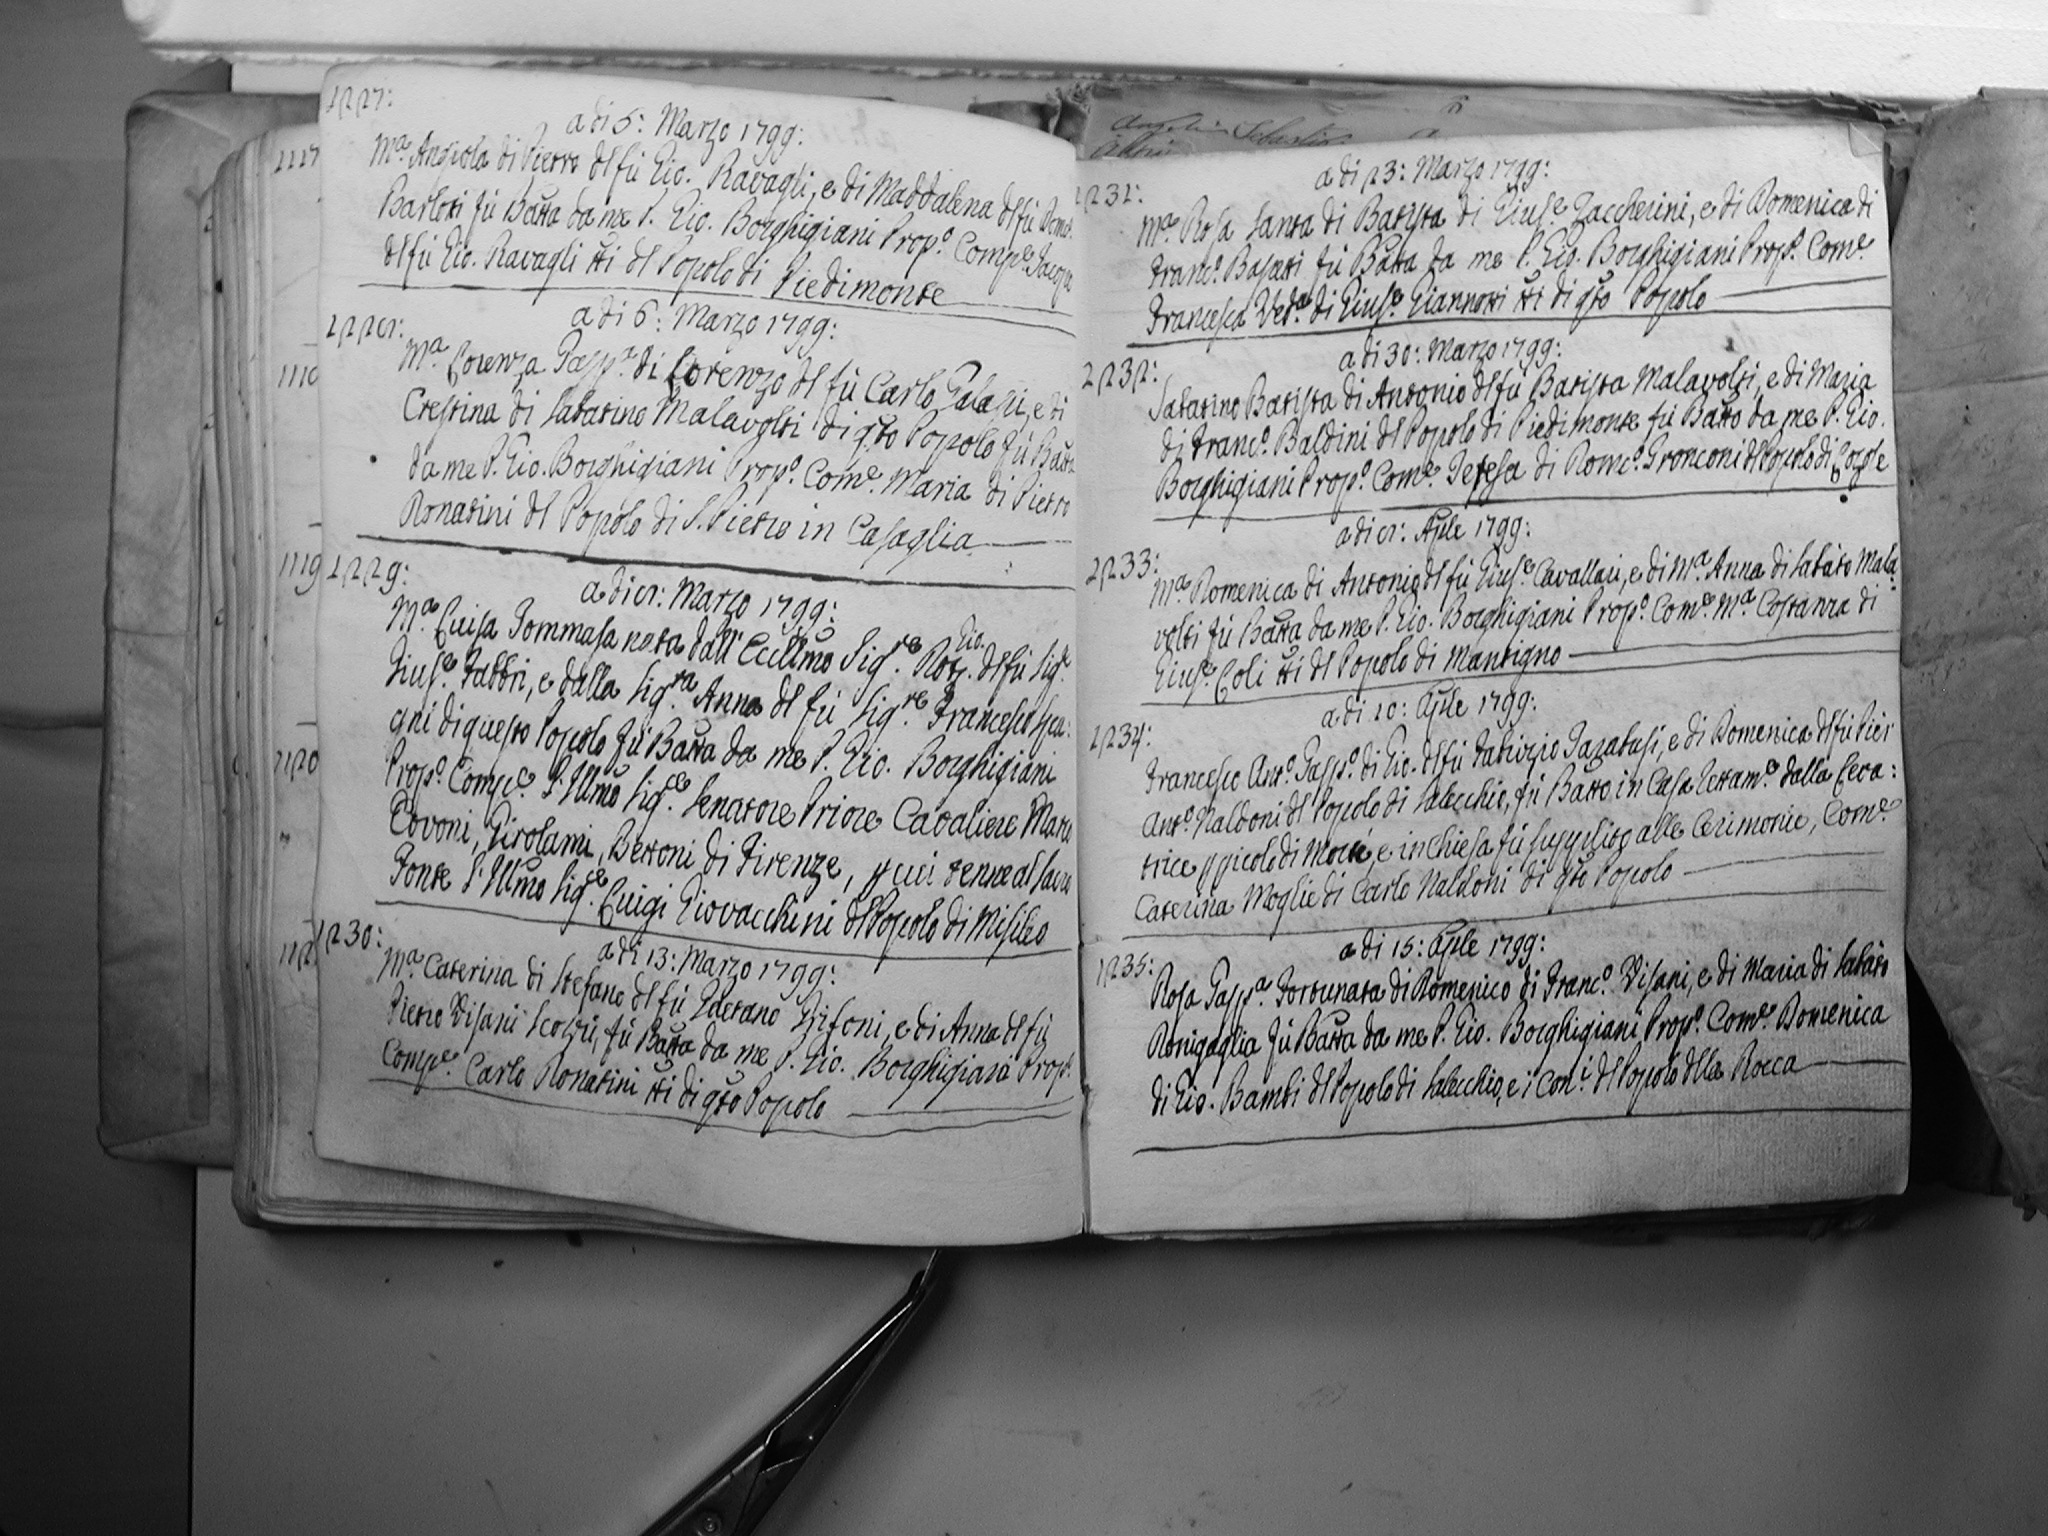 1227:
a di 5: Marzo 1799:
Mª. Angiola di Pietro dl fù Gio. Ravagli, e di Maddalena dl fù Dome
Barloti fù Batta da me P. Gio. Borghigiani Propº. Compe. Jacopo
dl fù Gio. Ravagli tti dl Popolo di Piedimonte
1228:
a di 6: Marzo 1799:
Mª Lorenza Gasppª. di Lorenzo dl fù Carlo Galassi, e di
Crestina di Sabatino Malavolti di qto Popolo fù Batta
da me P. Gio. Borghigiani Propº. Come. Maria di Pietro
Donatini dl Popolo di S. Pietro in Casaglia
1229:
a di 8: Marzo 1799:
Mª Luisa Tommasa nata dall' Eccllmo Sigre. Dott. Gio. dl fù Sigr.
Giuse. Fabbri, e dalla Sigra. Anna dl fù Sigre. Francesco
gni di questo Popolo fù Batta da me P. Gio. Borghigiani
Propº. Compe. l'Illmo Sigre. Senatore Priore Cavaliere Marco
Covoni, Girolami, Bettoni di Firenze, p cui tenne al Sacro
Fonte l'Illmo Sigre. Luigi Giovacchini dl Popolo di Misileo
1230:
a di 13: Marzo 1799:
Mª. Caterina di Stefano dl fù Gaetano Grifoni, e di Anna dl fù
Pietro Visani Scolzù, fù Batta da me P. Gio. Borghigiani Propº.
Compe. Carlo Donatini tti di qto Popolo
1117
1118
1119
1120
112
1231:
a di 23: Marzo 1799:
Mª. Rosa Santa di Batista di Giuse. Zaccherini, e di Domenica di
Francº. Basetti fù Batta da me P. Gio. Borghigiani Propº. Come.
Francesca Vedª. di Giuse. Giannotti tti di qto Popolo
1232:
a di 30: Marzo 1799:
Sabatino Batista di Antonio dl fù Batista Malavolti, e di Maria
di Francº. Baldini dl Popolo di Piedimonte fù Batto da me P. Gio.
Borghigiani Propº. Come. Teresa di Domcº. Tronconi dl Popolo di
1233:
a di 8: Aple 1799:
Mª Domenica di Antonio dl fù Giuse. Cavallari, e di Mª. Anna di Sabato Mala-
volti fù Batta da me P. Gio. Borghigiani Propº. Come. Mª. Costanza di
Giuse. Poli tti dl Popolo di Mantigno
1234:
a di 10: Aple 1799:
Francesco Antº. Gasppº. di Gio. dl fù Fabrizio Tarabusi, e di Domenica dl fù Pier
Antº. Naldoni dl Popolo di Salecchio, fù Batto in Casa Lettamᵉ. dalla Leva:
trice p picolo di Morte, e in Chiesa fù supplito alle Cerimonie, Come.
Caterina Moglie di Carlo Naldoni di qto Popolo
1235:
a di 15: Aple 1799:
Rosa Gasppª. Fortunata di Domenico di Francº. Visani, e di Maria di Sabato
Ronigaglia fù Batta da me P. Gio. Borghigiani Propº. Come. Domenica
di Gio. Bambi dl Popolo di Salecchio, e i Coni. dl Popolo dlla Rocca